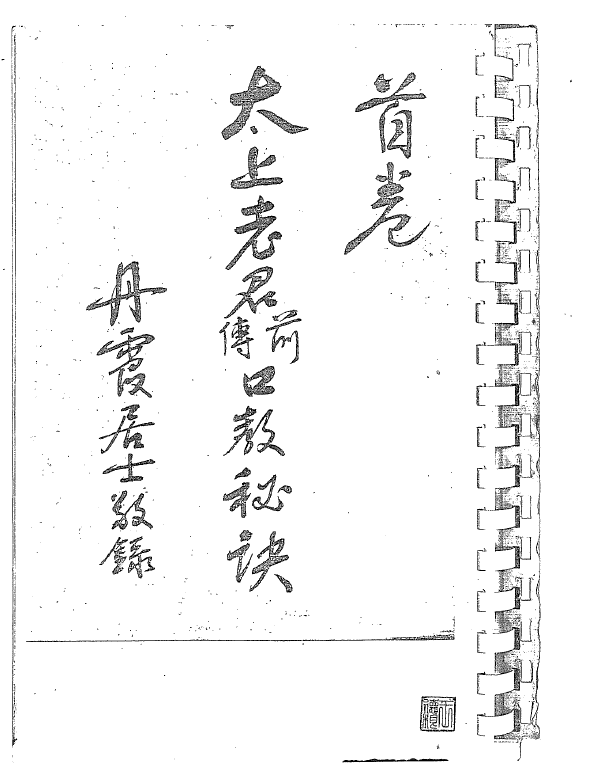 首卷
太上老君前傳口教秘訣
丹霞居士敬錄